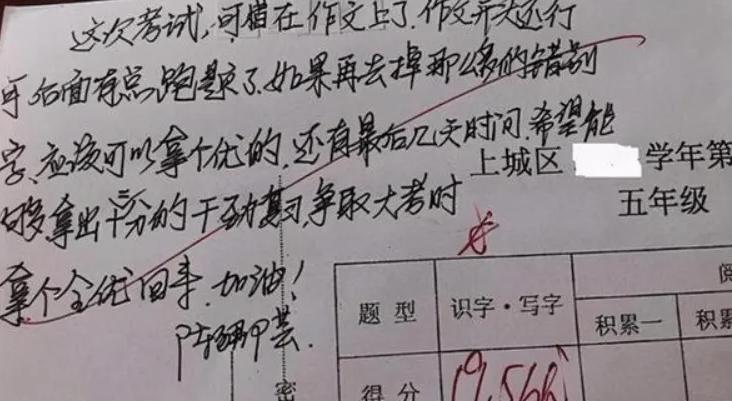 这次考试,可惜在作文上了.作文开头还行
可后面有点跑题了.如果再去掉那么多的错别
字、应该可以拿个优的.还有最后几天时间.希望能
够拿出十二分的干劲复习,争取大考时
拿个全优回来.加油!
上城区 学年第
五年级
优
题 型 识字·写字 阅
积累一 积累
得 分
密